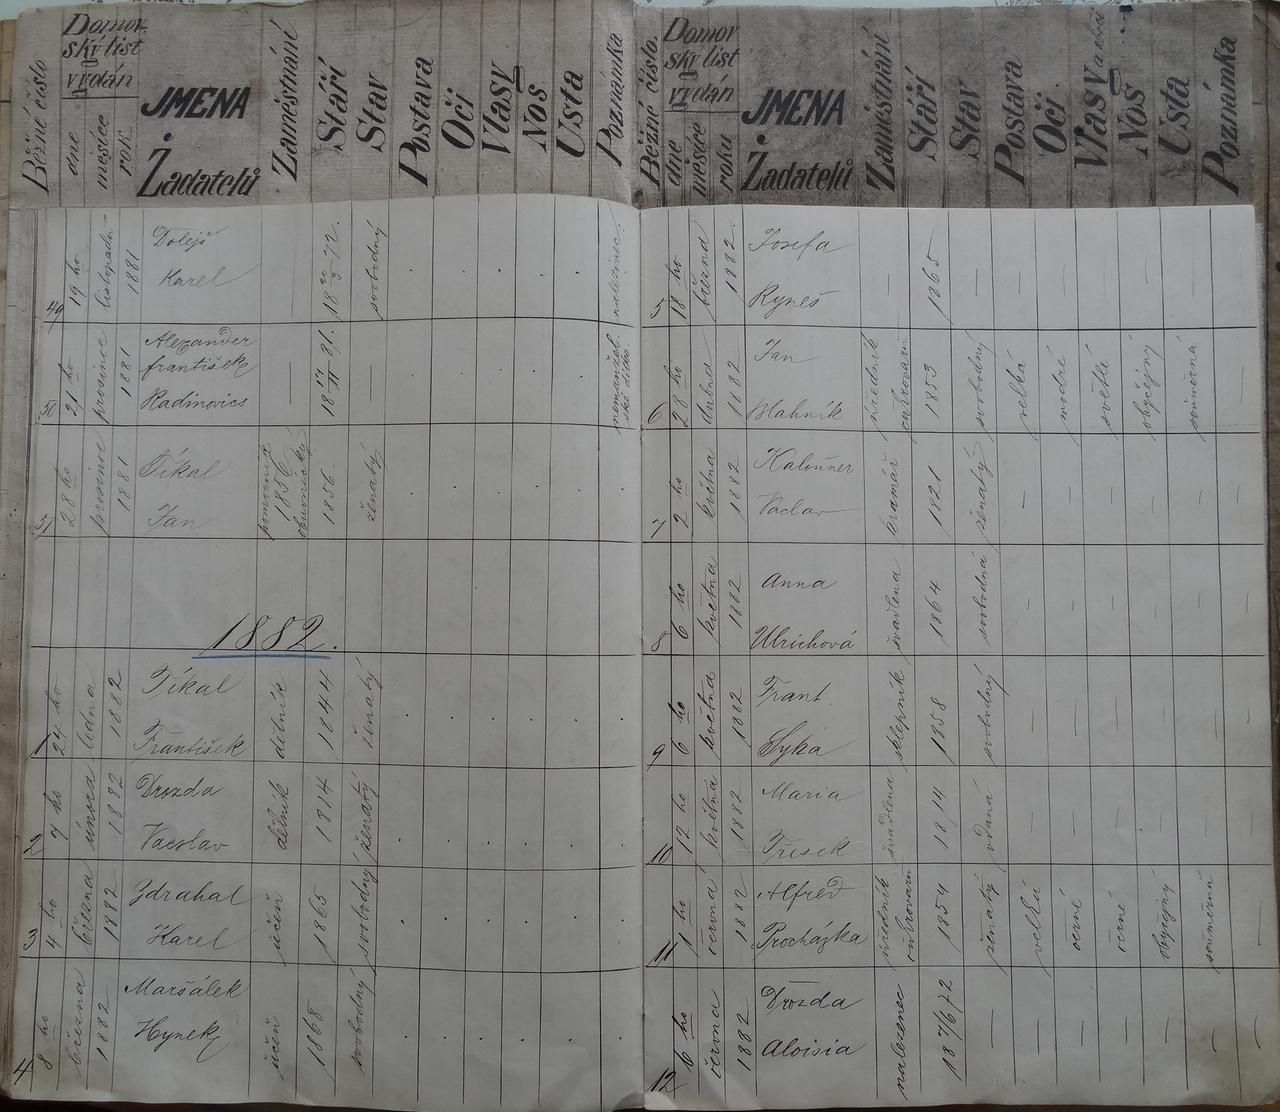 Běžné číslo
Domor-
ský list
vydán
dne
měsíce
rok
JMENA
Žadatelů
Zaměstnání
Stáří
Stav
Postava
Oči
Vlasy
Nos
Usta
Poznámka
49
19 ho
listopadu
1881
Dolejš
Karel
—
18 20/3 72.
svobodný
nalezinec.
50
21 ho
prosince
1881
Alexander
František
Radinovics
—
18 17/11 81.
—
nemanžel
ské dítko
51
28 ho
prosince
1881
Tíkal
Jan
pomocník
1856
obuvnický
1856
ženatý
1882.
1
24 ho
ledna
1882
Tíkal
František
dělník
1844
ženatý
2
7 ho
února
1882
Drozda
Vacslav
dělník
1814
ženatý
3
4 ho
března
1882
Zdrahal
Karel
učeň
1865
svobodný
4
8 ho
března
1882
Maršálek
Hynek
učeň
1868
svobodný
Běžné číslo.
Domor
ský list
vydán
dne
měsíce
roku
JMENA
Žadatelů
Zaměstnání
Stáří
Stav
Postava
Oči
Vlasy
Nos
Usta
Poznámka
5
18 ho
března
1882.
Josefa
Ryneš
—
1865
6
28 ho
dubna
1882
Jan
Blahník
úředník
cukrovaru
1853
svobodný
velká
modré
světlé
obyčejný
souměrná
7
2 ho
května
1882
Kalouner
Vaclav
kramář
1821
ženatý
8
6 ho
května
1882
Anna
Ulrichová
švadlena
1864
svobodná
9
6 ho
května
1882
Frant.
Syka
sklepník
1858
svobodný
10
12 ho
května
1882
Maria
Třísek
švadlena
1814
vdaná
11
1 ho
června
1882
Alfred
Procházka
úředník
cukrovaru
1854
ženatý
velká
černé
černé
obyčejný
souměrná
12
6 ho
června
1882
Drozda
Aloisia
nalezenec
18 7/6 72